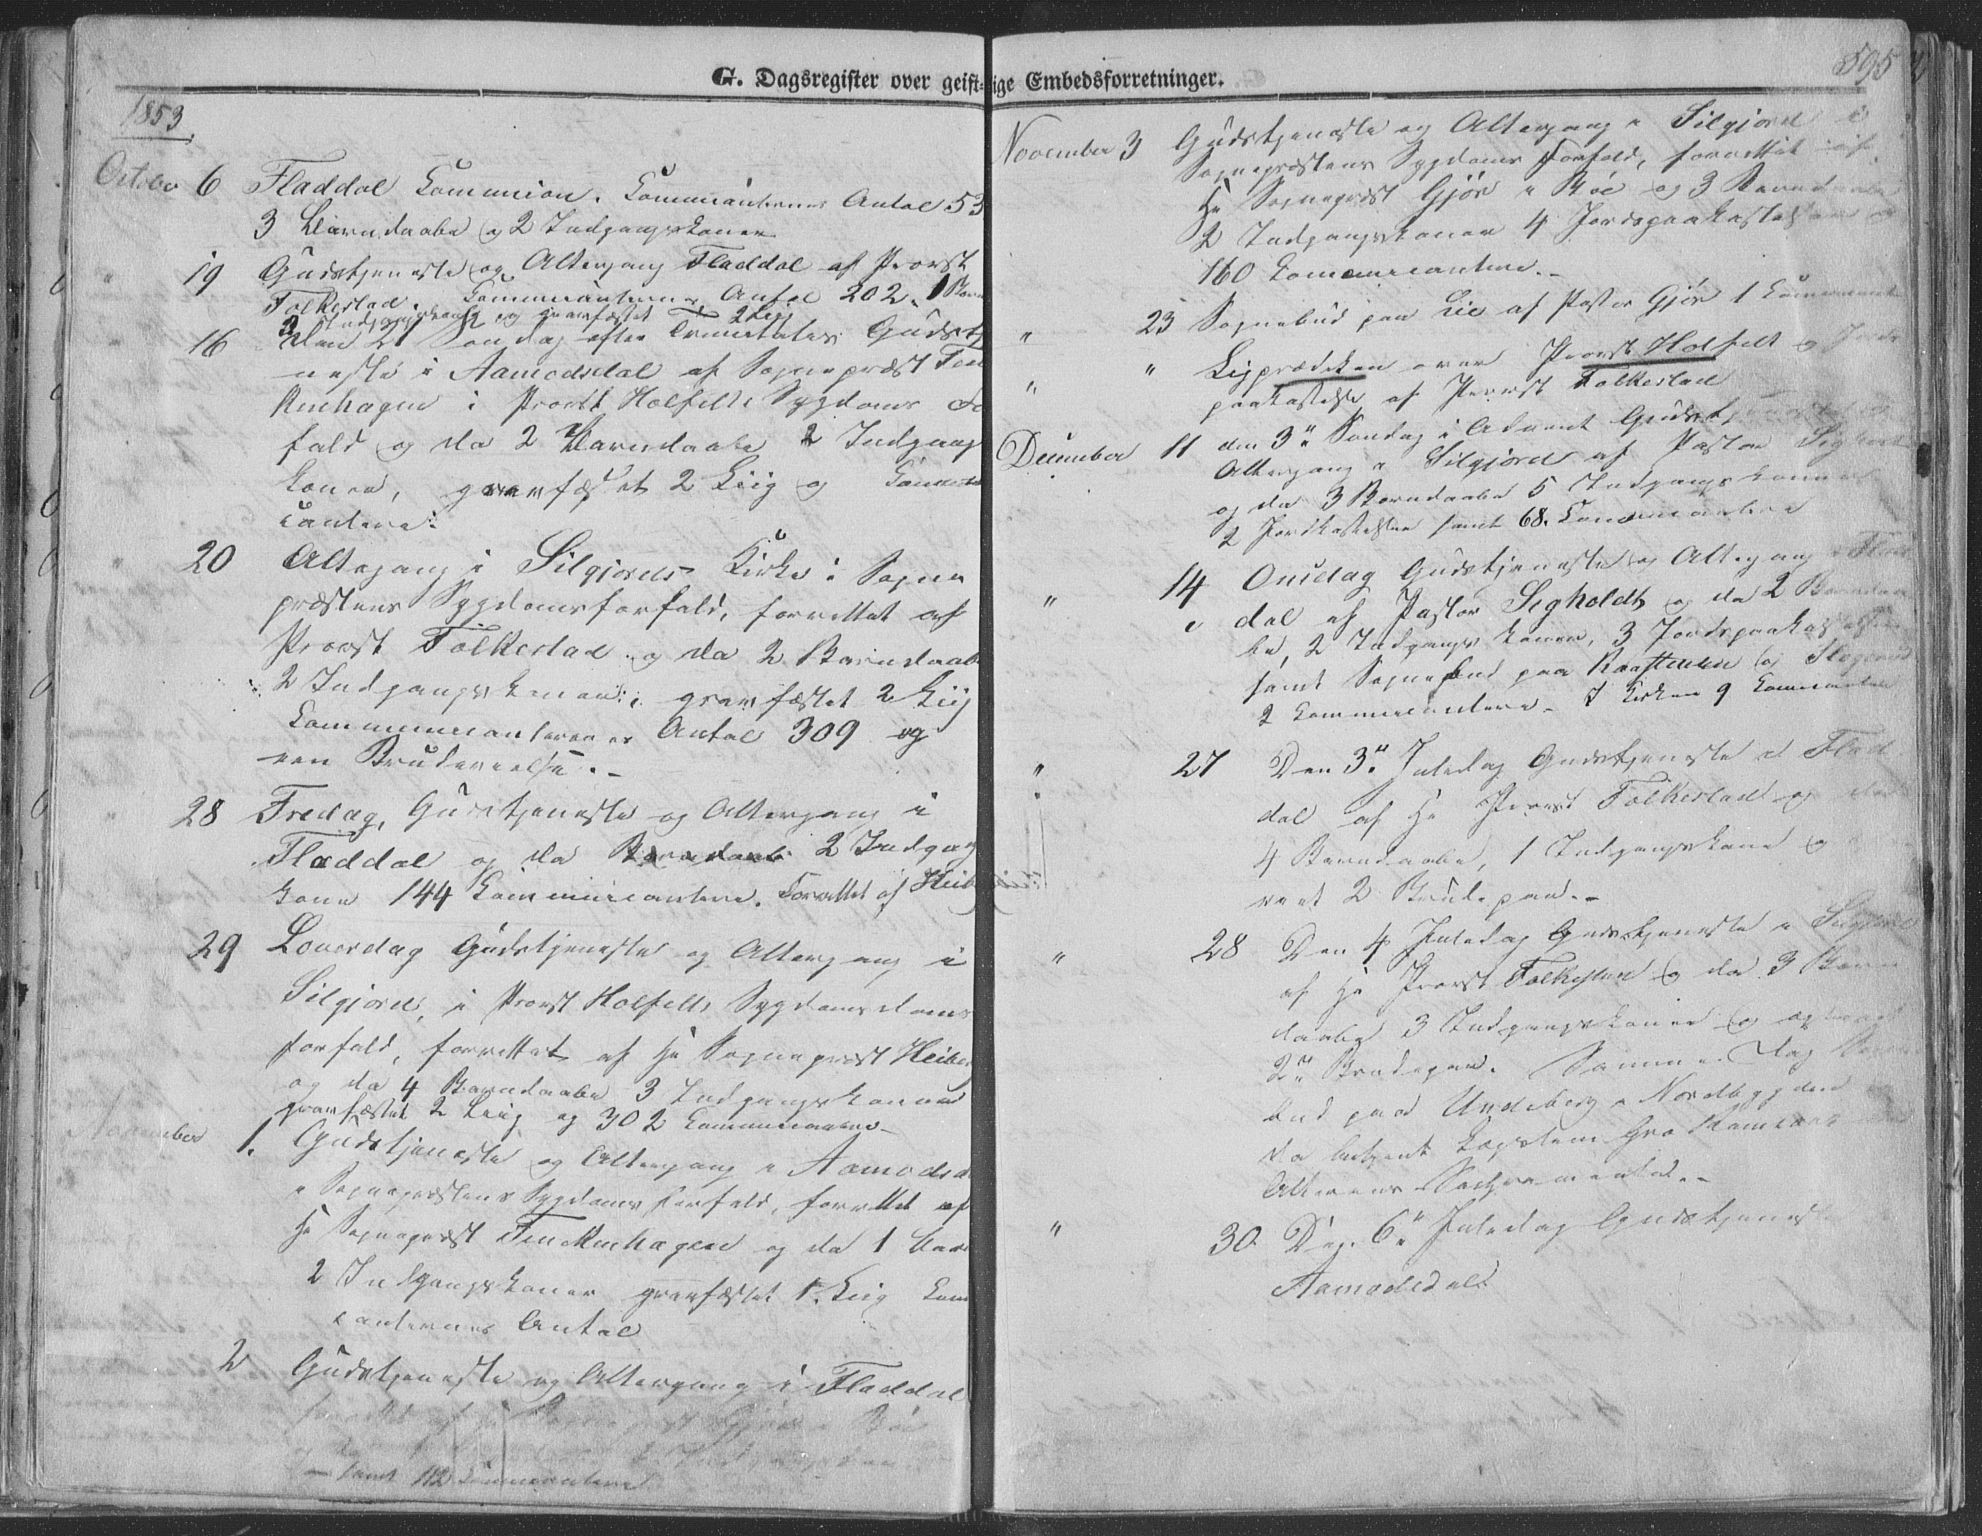 G. Dagsregister over geist-
1853.
October 6 Fladdal Communion. Communicanternes Antal 53
3 Barndaabe og 2 Indgangskoner
19 Gudstjeneste og Altergang Fladdal af Provst
Folkestad. Communicanternes Antal 202. 1 Barn
2 Indgangskoner og gravfæstet 2 Liig
16 Den 21 Søndag efter Trinitatis Gudstj
neste i Aamodsdal af Sognepræst
i Provst Holfeldts Sygdoms
fald og da 2 Barndaabe 2 Indgangs
koner, gravfæstet 2 Liig og
cantere.
20 Altergang i Silgjords Kirke i Sogne
præstens Sygdomsforfald, forrettet af
Provst Folkestad og da 2 Barndaab
2 Indgangskoner, gravfæstet 2 Liig
Communicanternes Antal 309 og
een Brudevielse.-
28 Fredag, Gudstjeneste og Altergang i
Fladdal og da Barndaab 2 Indgangs
kone 144 Communicantere. Forrettet af Heib
29 Løverdag Gudstjeneste og Altergang i
Silgjord, i Provst Holfeldts Sygdoms
forfald, forrettet af Hr Sognepræst Heiberg
og da 4 Barndaabe 3 Indgangskoner
gravfæstet 2 Liig og 302 Communicantere-
November 1. Gudstjeneste og Altergang i Aamodsd
i Sognepræstens Sygdoms Forfald, forrettet af
Hr Sognepræst og da 1 Barn
2 Indgangskoner gravfæstet 1. Liig Com
canternes Antal
2 Gudstjeneste og Altergang i Fladdal
forrettet af Hr Sognepræst Gjør i Bøe
samt 112 Communicantere
ige Embedsforretninger.
595
November 3 Gudstjeneste og Altergang i Silgjord i
Sognepræstens Sygdoms Forfald, forrettet af
Hr Sognepræst Gjør i Bøe og 3 Barndaabe
2 Indgangskoner 4 Jordspaakastelser og
160 Communicantere.-
" 23 Sognebud paa Lie af Pastor Gjør 1 Communicant
" " Ligprædiken over Provst Holfelt og Jords
paakastelse af Provst Folkestad
December 11 den 3die Søndag i Advent Gudstjeneste og
Altergang i Silgjord af Pastor Sigholt
og da 3 Barndaabe 5 Indgangskoner
2 Jordkastelser samt 68. Communicantere
" 14 Onsdag Gudstjeneste og Altergang i Flad
dal af Pastor Sigholdt og da 2 Barndaa
be, 2 Indgangskoner, 3 Jordspaakastelser
samt Sognebud paa og
2 Communicantere- I Kirken 9 Communicantere
" 27 Den 3die Juledag Gudstjeneste i Flad
dal af Hr Provst Folkestad og da
4 Barndaabe, 1 Indgangskone og
viet 2 Brudepar.-
" 28 Den 4 Juledag Gudstjeneste i Silgjord
af Hr Provst Folkestad og da 3 Barn
daabe 3 Indgangskoner og
2de Brudepar. Samme Dag Sogne
bud paa Undeberg i Nordbygden
da betjent Gro med
Alterens Sachramente.-
" 30 D. 6te Juledag Gudstjeneste
Aamodsdal